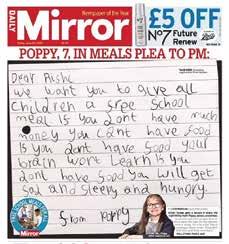 Newspaper of the Year
DAILY
Mirror
£5 OFF
No7 Future
Renew
POPPY, 7, IN MEALS PLEA TO PM:
Dear Rishi
we want you to give all
children a free school
meal is you dont have much
money you cant have food
Is you dont have food your
brain wont Learn Is you
dont have food you will get
sad and sleepy and hungry.
from Poppy